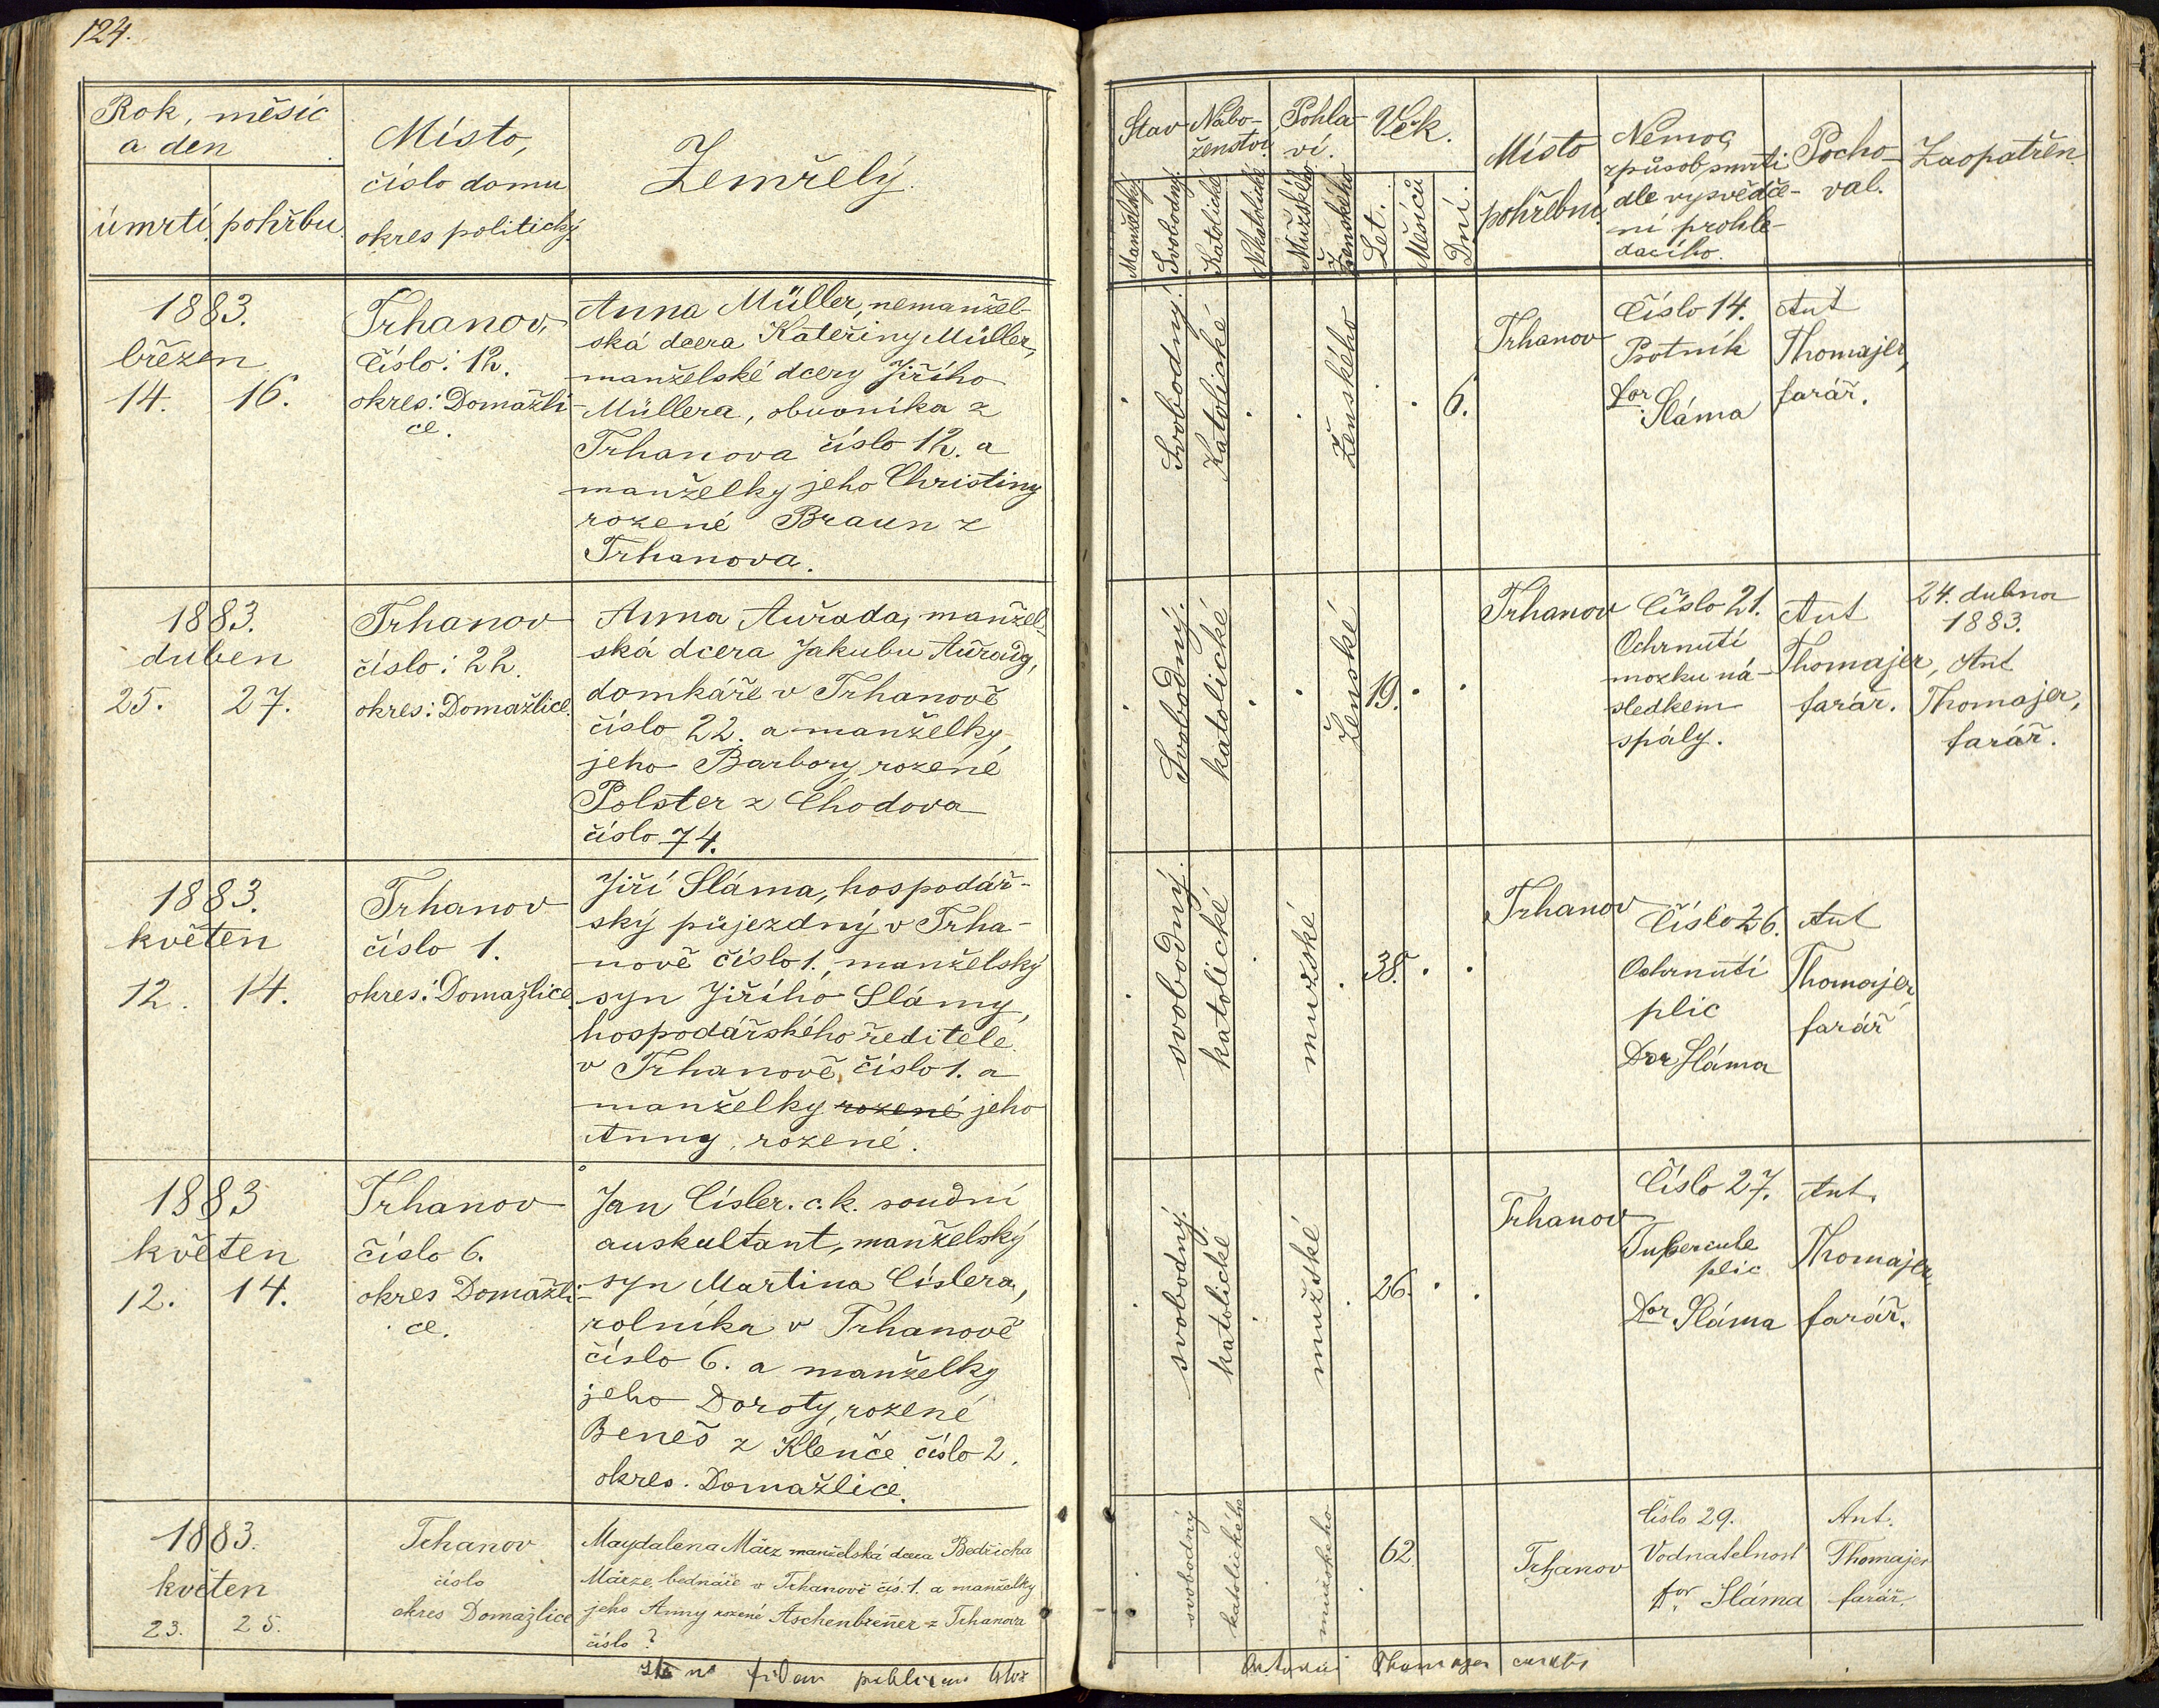 124.
Rok, měsíc
a den
úmrtí. pohřbu.
Místo,
číslo domu
okres politický.
Zemřelý.
1883.
březen
14. 16.
Trhanov,
Číslo: 12.
okres: Domažli-
ce.
Anna Müller, nemanžel-
ská dcera Kateřiny Müller,
manželské dcery Jiřího
Müllera, obuvníka z
Trhanova číslo 12. a
manželky jeho Christiny
rozené Braun z
Trhanova.
1883.
duben
25. 27.
Trhanov
číslo: 22.
okres: Domažlice.
Anna Auřada, manžel-
ská dcera Jakubu Auřady,
domkáře v Trhanově
číslo 22. a manželky
jeho Barbory, rozené
Polster z Chodova
číslo 74.
1883.
květen
12. 14.
Trhanov
číslo 1.
okres: Domažlice.
Jiří Sláma, hospodář-
ský půjezdný v Trha-
nově číslo 1., manželský
syn Jiřího Slámy,
hospodářského ředitele
v Trhanově, číslo 1. a
manželky rozené jeho
Anny, rozené.
1883
květen
12. 14.
Trhanov
číslo 6.
okres Domažli-
ce.
Jan Císler. c. k. soudní
auskultant, manželský
syn Martina Císlera,
rolníka v Trhanově
číslo 6. a manželky
jeho Doroty, rozené
Beneš z Klenče číslo 2.
okres. Domažlice.
1883.
květen
23. 25.
Trhanov
číslo
okres Domažlice
Magdalena März manželská dcera Bedřicha
Märze, bednáře v Trhanově čís. 1. a manželky
jeho Anny rozené Aschenbrenner z Trhanova
číslo ?
fidem publicam
Stav
Nábo-
ženství.
Pohla-
ví.
Věk.
Místo
pohřební
Nemoc,
způsob smrti
dle vysvědče-
ní prohle-
dacího.
Pocho-
val.
Zaopatřen
Manželský
Svobodný.
Katolické
Nekatolické
Mužského
Ženského
Let.
Měsíců
Dní.
Svobodný.
Katolické
Ženského
6.
Trhanov
Číslo 14.
Psotník
Dor
Sláma
Ant
Thomajer,
farář.
Svobodný.
katolické
Ženské
19.
Trhanov
Číslo 21.
Ochrnutí
mozku ná-
sledkem
spály.
Ant
Thomajer,
farář.
24. dubna
1883.
Ant
Thomajer,
farář.
svobodný.
katolické
mužské
38.
Trhanov
Číslo 26.
Ochrnutí
plic
Dor Sláma
Ant
Thomajer
farář
svobodný.
katolické
mužské
26.
Trhanov
Číslo 27.
Tubercule
plic
Dor Sláma
Ant.
Thomajer,
farář.
svobodný
katolického
mužského
62.
Trhanov
Číslo 29.
Vodnatelnost
Dor Sláma
Ant.
Thomajer
farář.
Thomajer